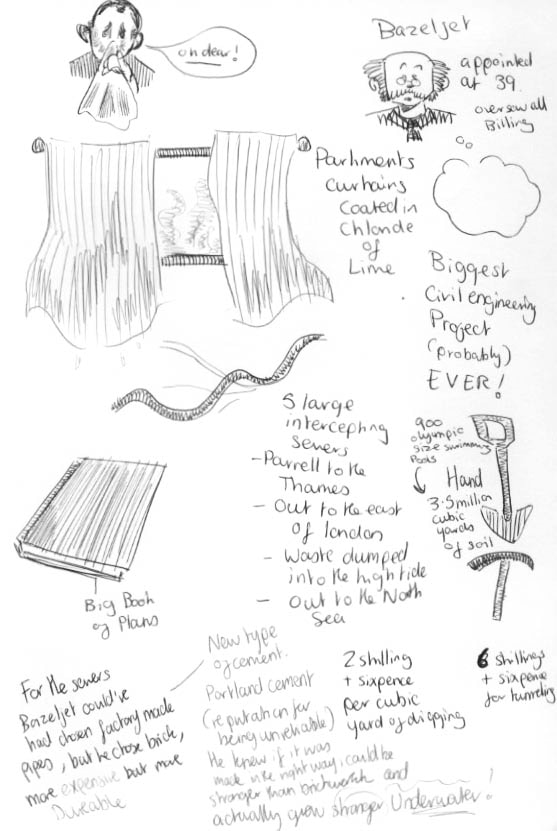 oh dear!
Bazeljet
appointed
at 39.
oversaw all
Billing
Parliments
curtains
coated in
Chloride
of
Lime
Biggest
Civil engineering
Project
(probably)
EVER!
5 large
intercepting
sewers
- Parrell to the
Thames
- Out to the east
of london
- Waste dumped
into the high tide
- Out to the North
Sea
900
olympic
size swimming
Pools
Hand
3.5 million
cubic
yards
of soil
Big Book
of Plans
For the sewers
Bazeljet could've
had chosen factory made
pipes, but he chose brick,
more expensive but more
Dureable
New type
of cement.
Portland cement
(reputation for
being unreliable)
He knew if it was
made in the right way, could be
stronger than brickwork and
actually grew stronger Underwater!
2 shilling
+ sixpence
per cubic
yard of digging
6 shillings
+ sixpence
for tunneling